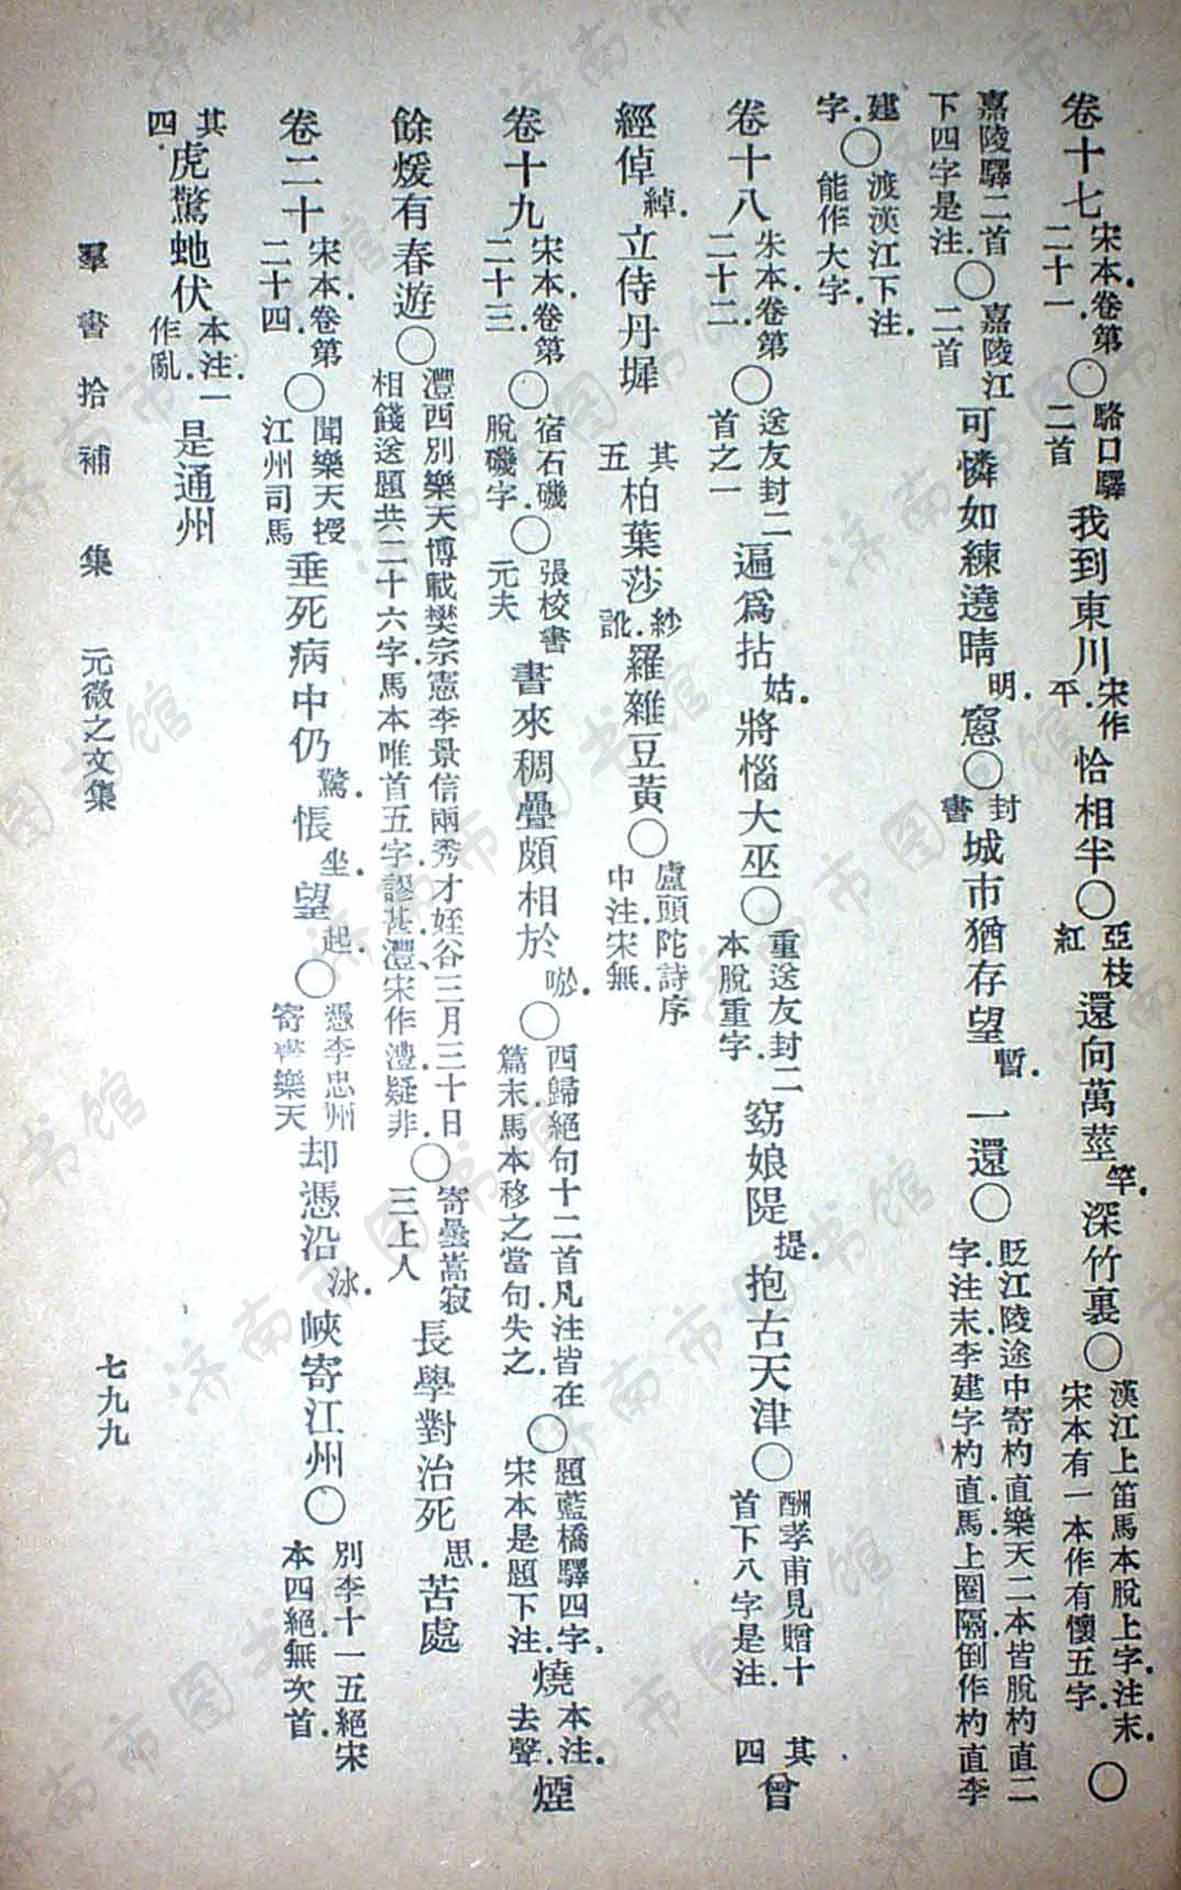 卷十七宋本卷第二十一.〇駱口驛二首我到東川宋作平.恰相半〇亞枝紅還向萬莖竿.深竹裏〇漢江上笛馬本脫上字.注末.宋本有一本作有懷五字.〇
嘉陵驛二首下四字是注.〇嘉陵江二首可憐如練遶晴明.窻〇封書城市猶存望暫.一還〇貶江陵途中寄杓直樂天二本皆脫杓直二字.注末.李建字杓直.馬上圈隔.倒作杓直李
建字.〇渡漢江下注.能作大字.
卷十八朱本.卷第二十二.〇送友封二首之一遍爲拈姑.將惱大巫〇重送友封二本脫重字.窈娘隄提.抱古天津〇酬孝甫見贈十首下八字是注.其四曾
經倬綽.立侍丹墀其五柏葉莎紗訛.羅雜豆黃〇盧頭陀詩序中注.宋無.
卷十九宋本.卷第二十三〇宿石磯脫磯字.〇張校書元夫書來稠疊頗相於唹.〇西歸絕句十二首凡注皆在篇末.馬本移之當句.失之.〇題藍橋驛四字.宋本是題下注.燒本注.去聲.煙
餘煖有春遊〇灃西別樂天博載樊宗憲李景信兩秀才姪谷三月三十日相餞送題共二十六字.馬本唯首五字.謬甚.灃.宋作澧.疑非.〇寄曇嵩寂三上人長學對治死思.苦處
卷二十宋本.卷第二十四.〇聞樂天授江州司馬垂死病中仍驚.悵坐.望起.〇憑李忠州寄書樂天却憑沿泳.峽寄江州〇別李十一五絕宋本四絕.無次首.
其四.虎驚虵伏本注.一作亂.是通州
羣書拾補 集 元微之文集 七九九
济南市图书馆